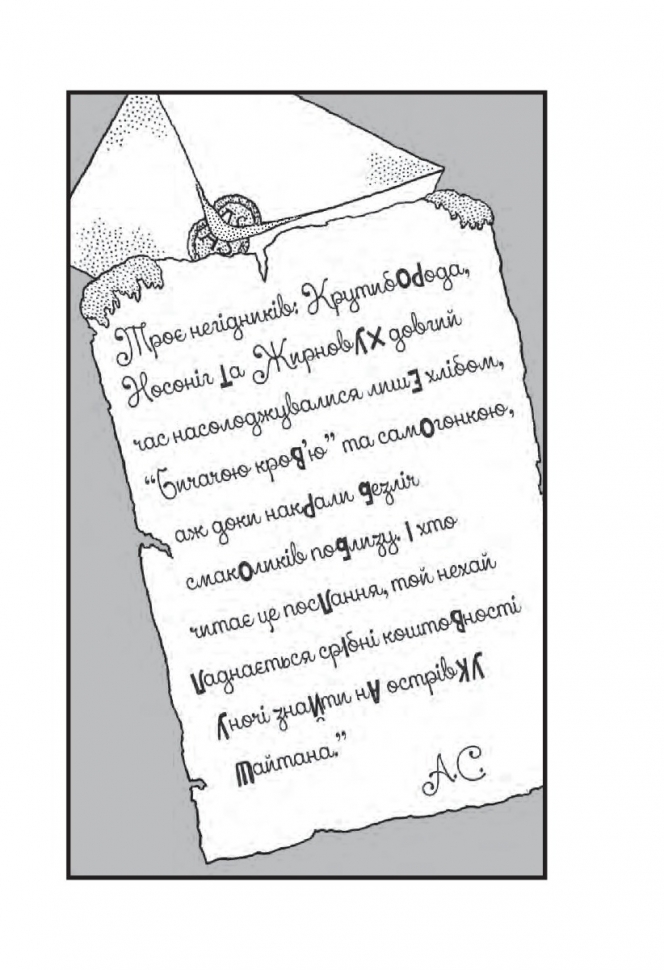 Троє негідників: КрутибОРода,
Носоніг Та ЖирновУХ довгий
час насолоджувалися лишЕ хлібом,
“Бичачою кроВ’ю” та самОгонкою,
аж доки накРали Безліч
смакОликів поБлизу. І хто
читає це посЛання, той нехай
Ладнається срІбні коштоВності
Уночі знаЙти нА острівКУ
Майтана.”
А.С.